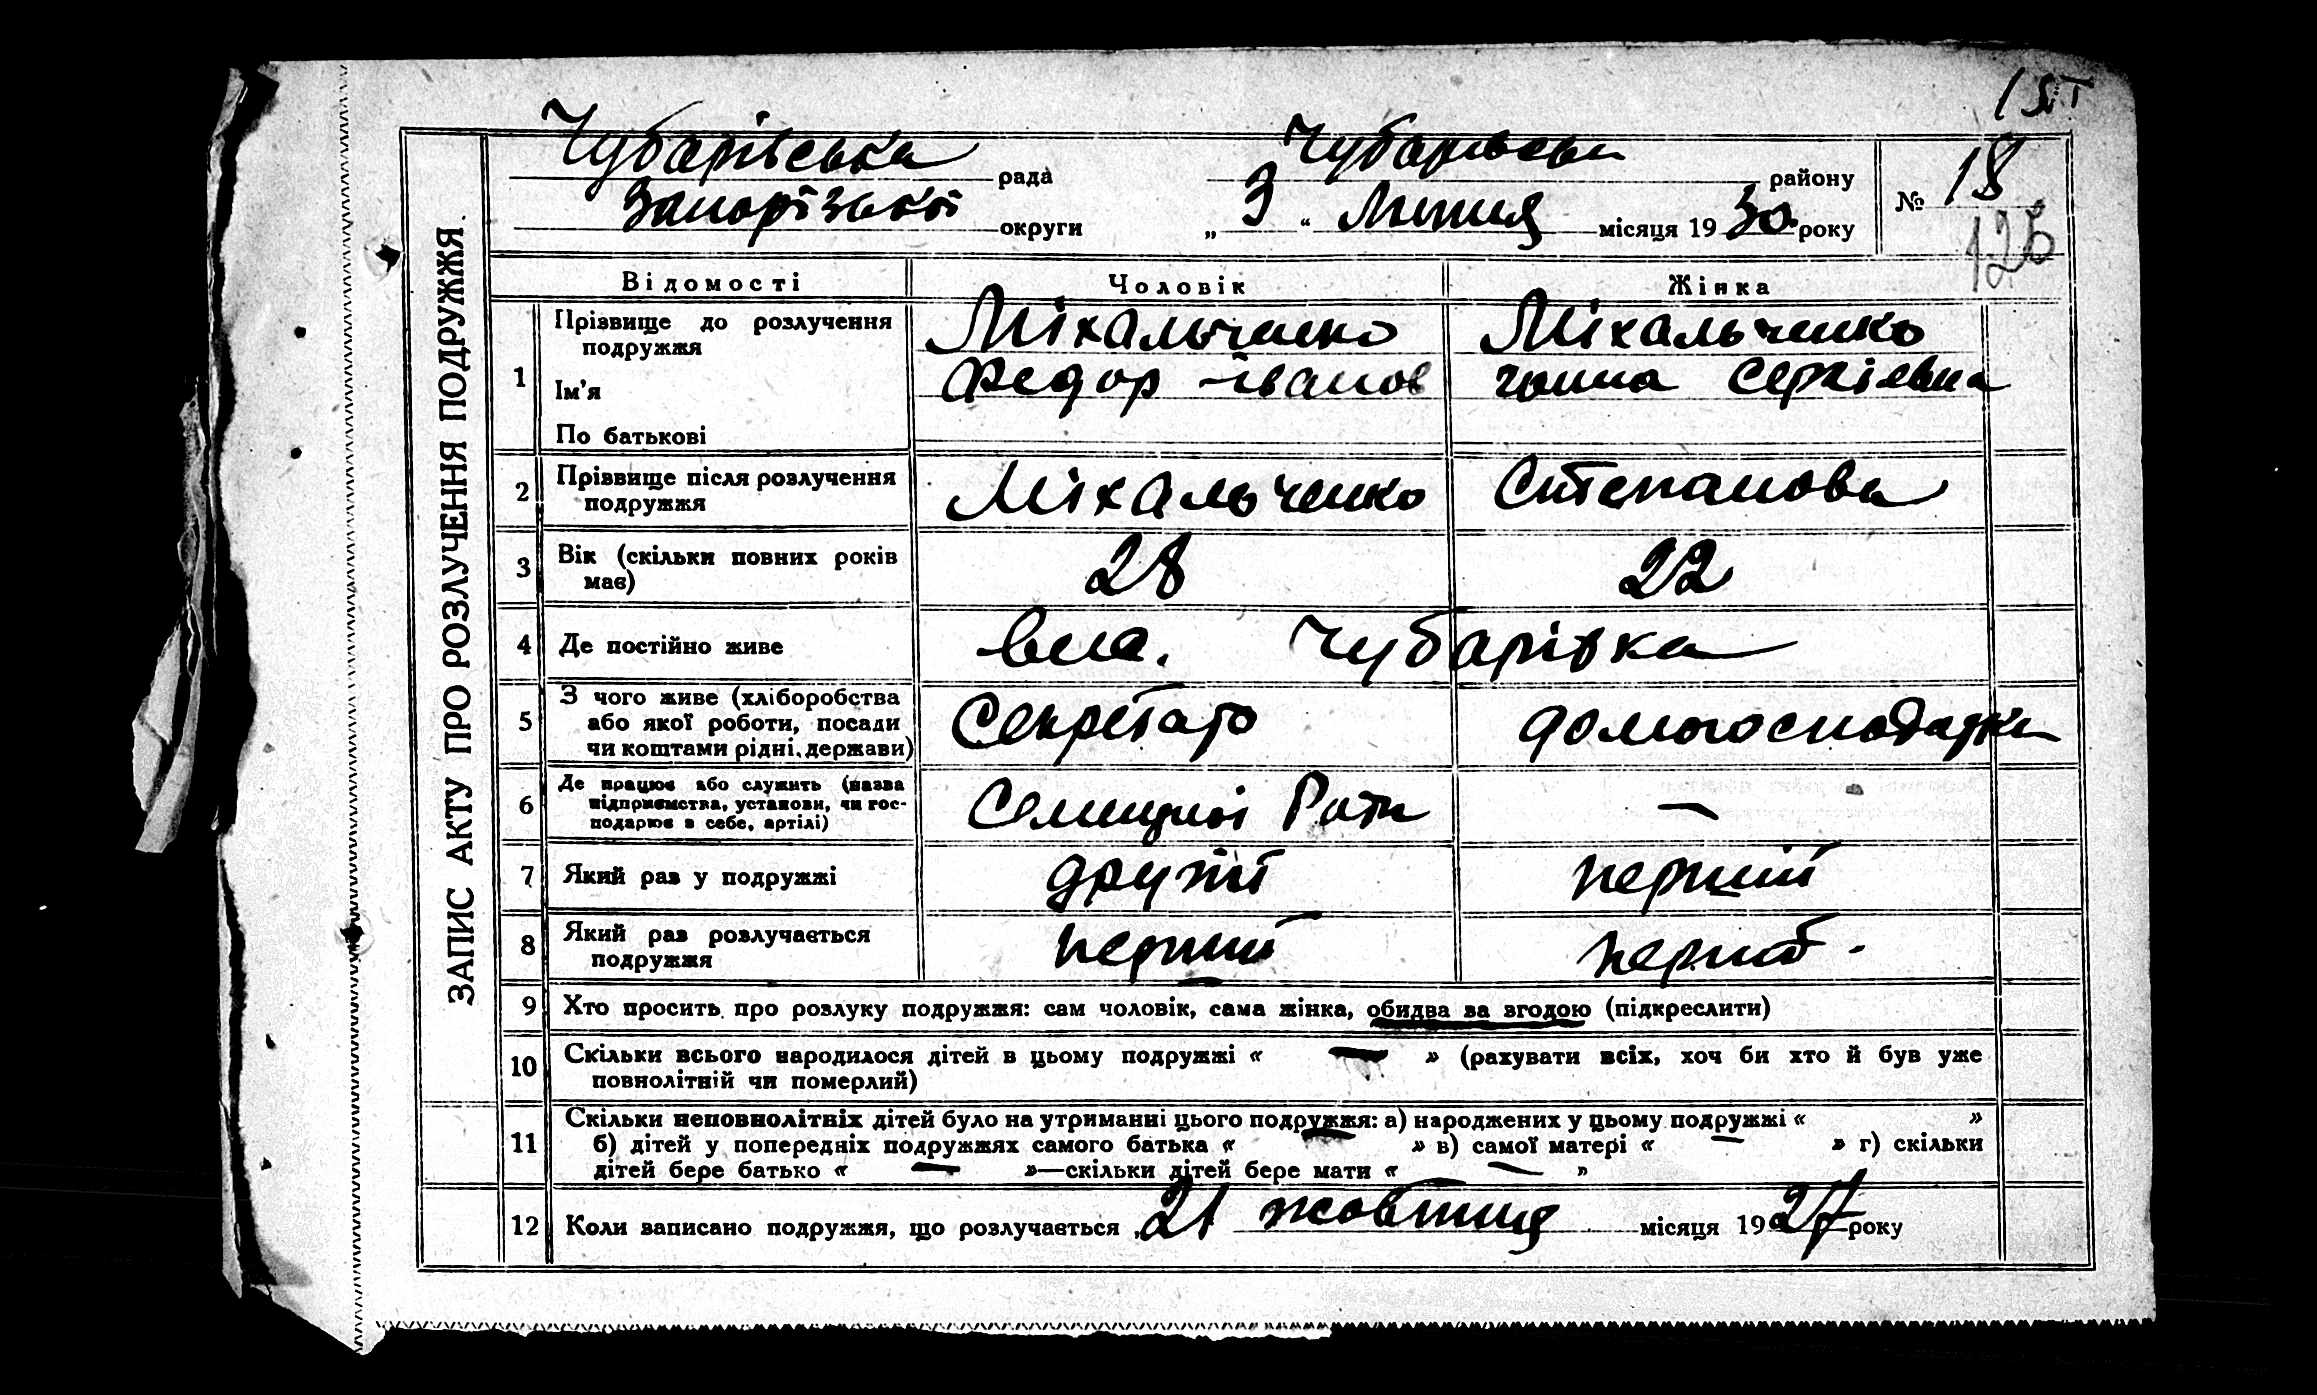 Чубарівська рада Чубарівськ району № 18
Запорізької округи „ 3 “ Липня місяця 1930 року
125
ЗАПИС АКТУ ПРО РОЗЛУЧЕННЯ ПОДРУЖЖЯ.
Відомості Чоловік Жінка
1 Прізвище до розлучення подружжя Міхальченко Міхальченко
Ім'я Федор Іванов Ганна Сергіевна
По батькові
2 Прізвище після розлучення подружжя Міхальченко Степанова
3 Вік (скільки повних років має) 28 22
4 Де постійно живе Чубарівка
5 З чого живе (хліборобства або якої роботи, посади чи коштами рідні, держави) Секретар домогосподарка
6 Де працює або служить (назва підприємства, установи, чи господарює в себе, артілі) —
7 Який раз у подружжі другий перший
8 Який раз розлучається подружжя перший перший
9 Хто просить про розлуку подружжя: сам чоловік, сама жінка, обидва за згодою (підкреслити)
10 Скільки всього народилося дітей в цьому подружжі « — » (рахувати всіх, хоч би хто й був уже
повнолітній чи померлий)
11 Скільки неповнолітніх дітей було на утриманні цього подружжя: а) народжених у цьому подружжі « »
б) дітей у попередніх подружжях самого батька « — » в) самої матері « — » г) скільки
дітей бере батько « — »—скільки дітей бере мати « — »
12 Коли записано подружжя, що розлучається „ 21 жовтня місяця 1927 року